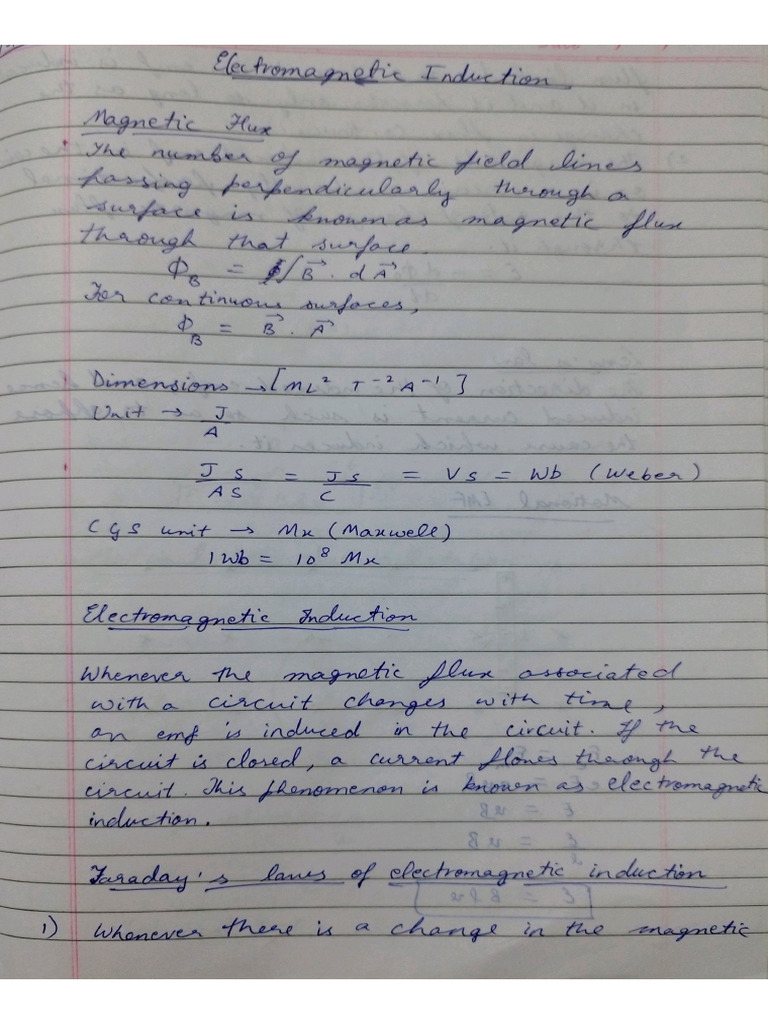 Electromagnetic Induction
Magnetic Flux
The number of magnetic field lines
passing perpendicularly through a
surface is known as magnetic flux
through that surface.
Φ_B = ∫ B⃗ . dA⃗
For continuous surfaces,
Φ_B = B⃗ . A⃗
Dimensions → [ML² T⁻² A⁻¹]
Unit → J/A
JS/AS = JS/C = VS = Wb (Weber)
CGS unit → Mx (Maxwell)
1Wb = 10⁸ Mx
Electromagnetic Induction
Whenever the magnetic flux associated
with a circuit changes with time,
an emf is induced in the circuit. If the
circuit is closed, a current flows through the
circuit. This phenomenon is known as electromagnetic
induction.
Faraday's laws of electromagnetic induction
1) Whenever there is a change in the magnetic